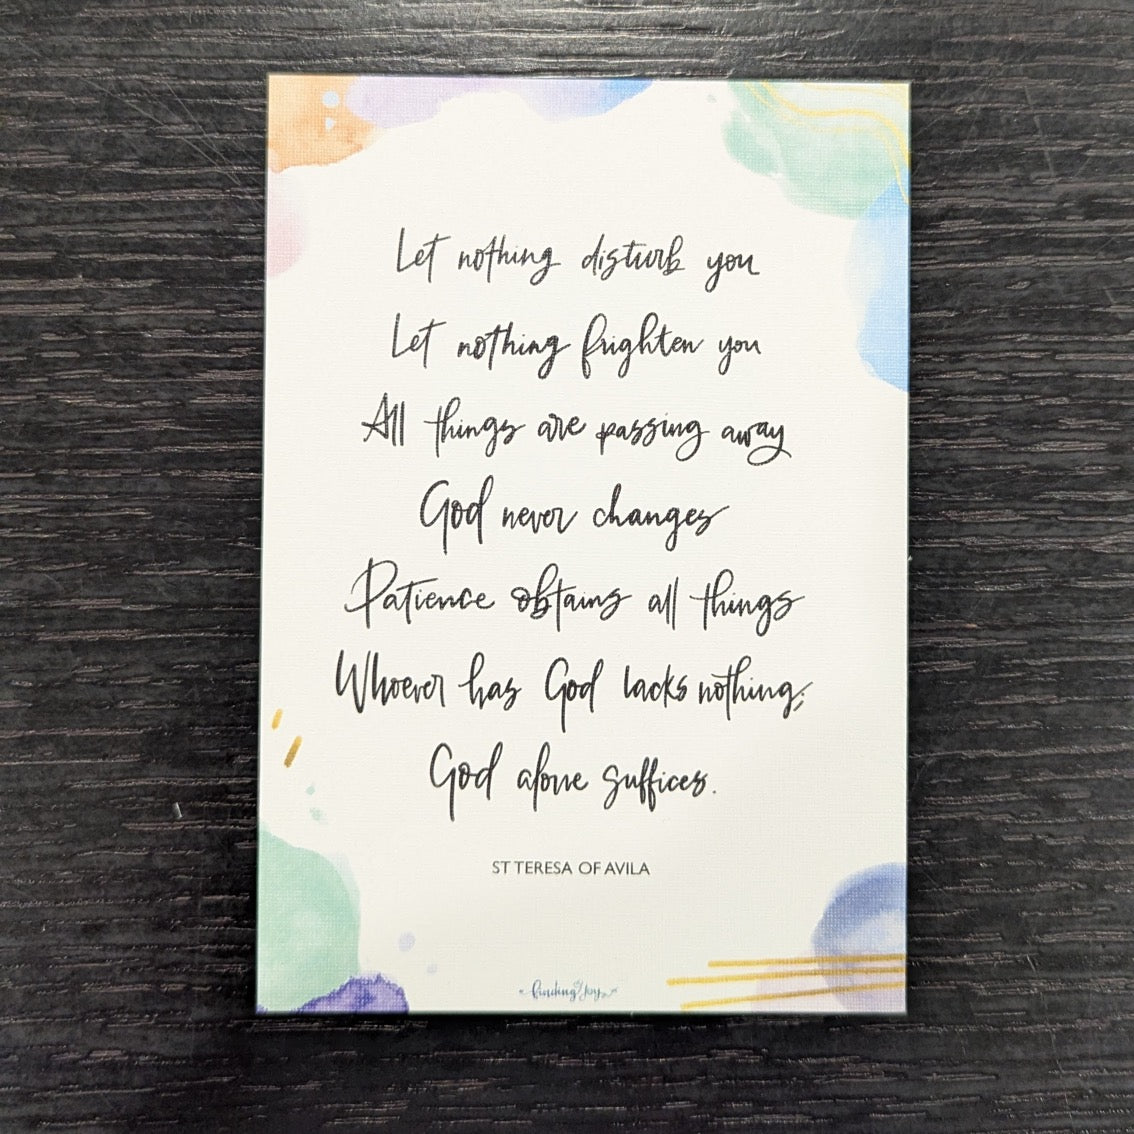 Let nothing disturb you
Let nothing frighten you
All things are passing away
God never changes
Patience obtains all things
Whoever has God lacks nothing;
God alone suffices.
ST TERESA OF AVILA
finding Joy